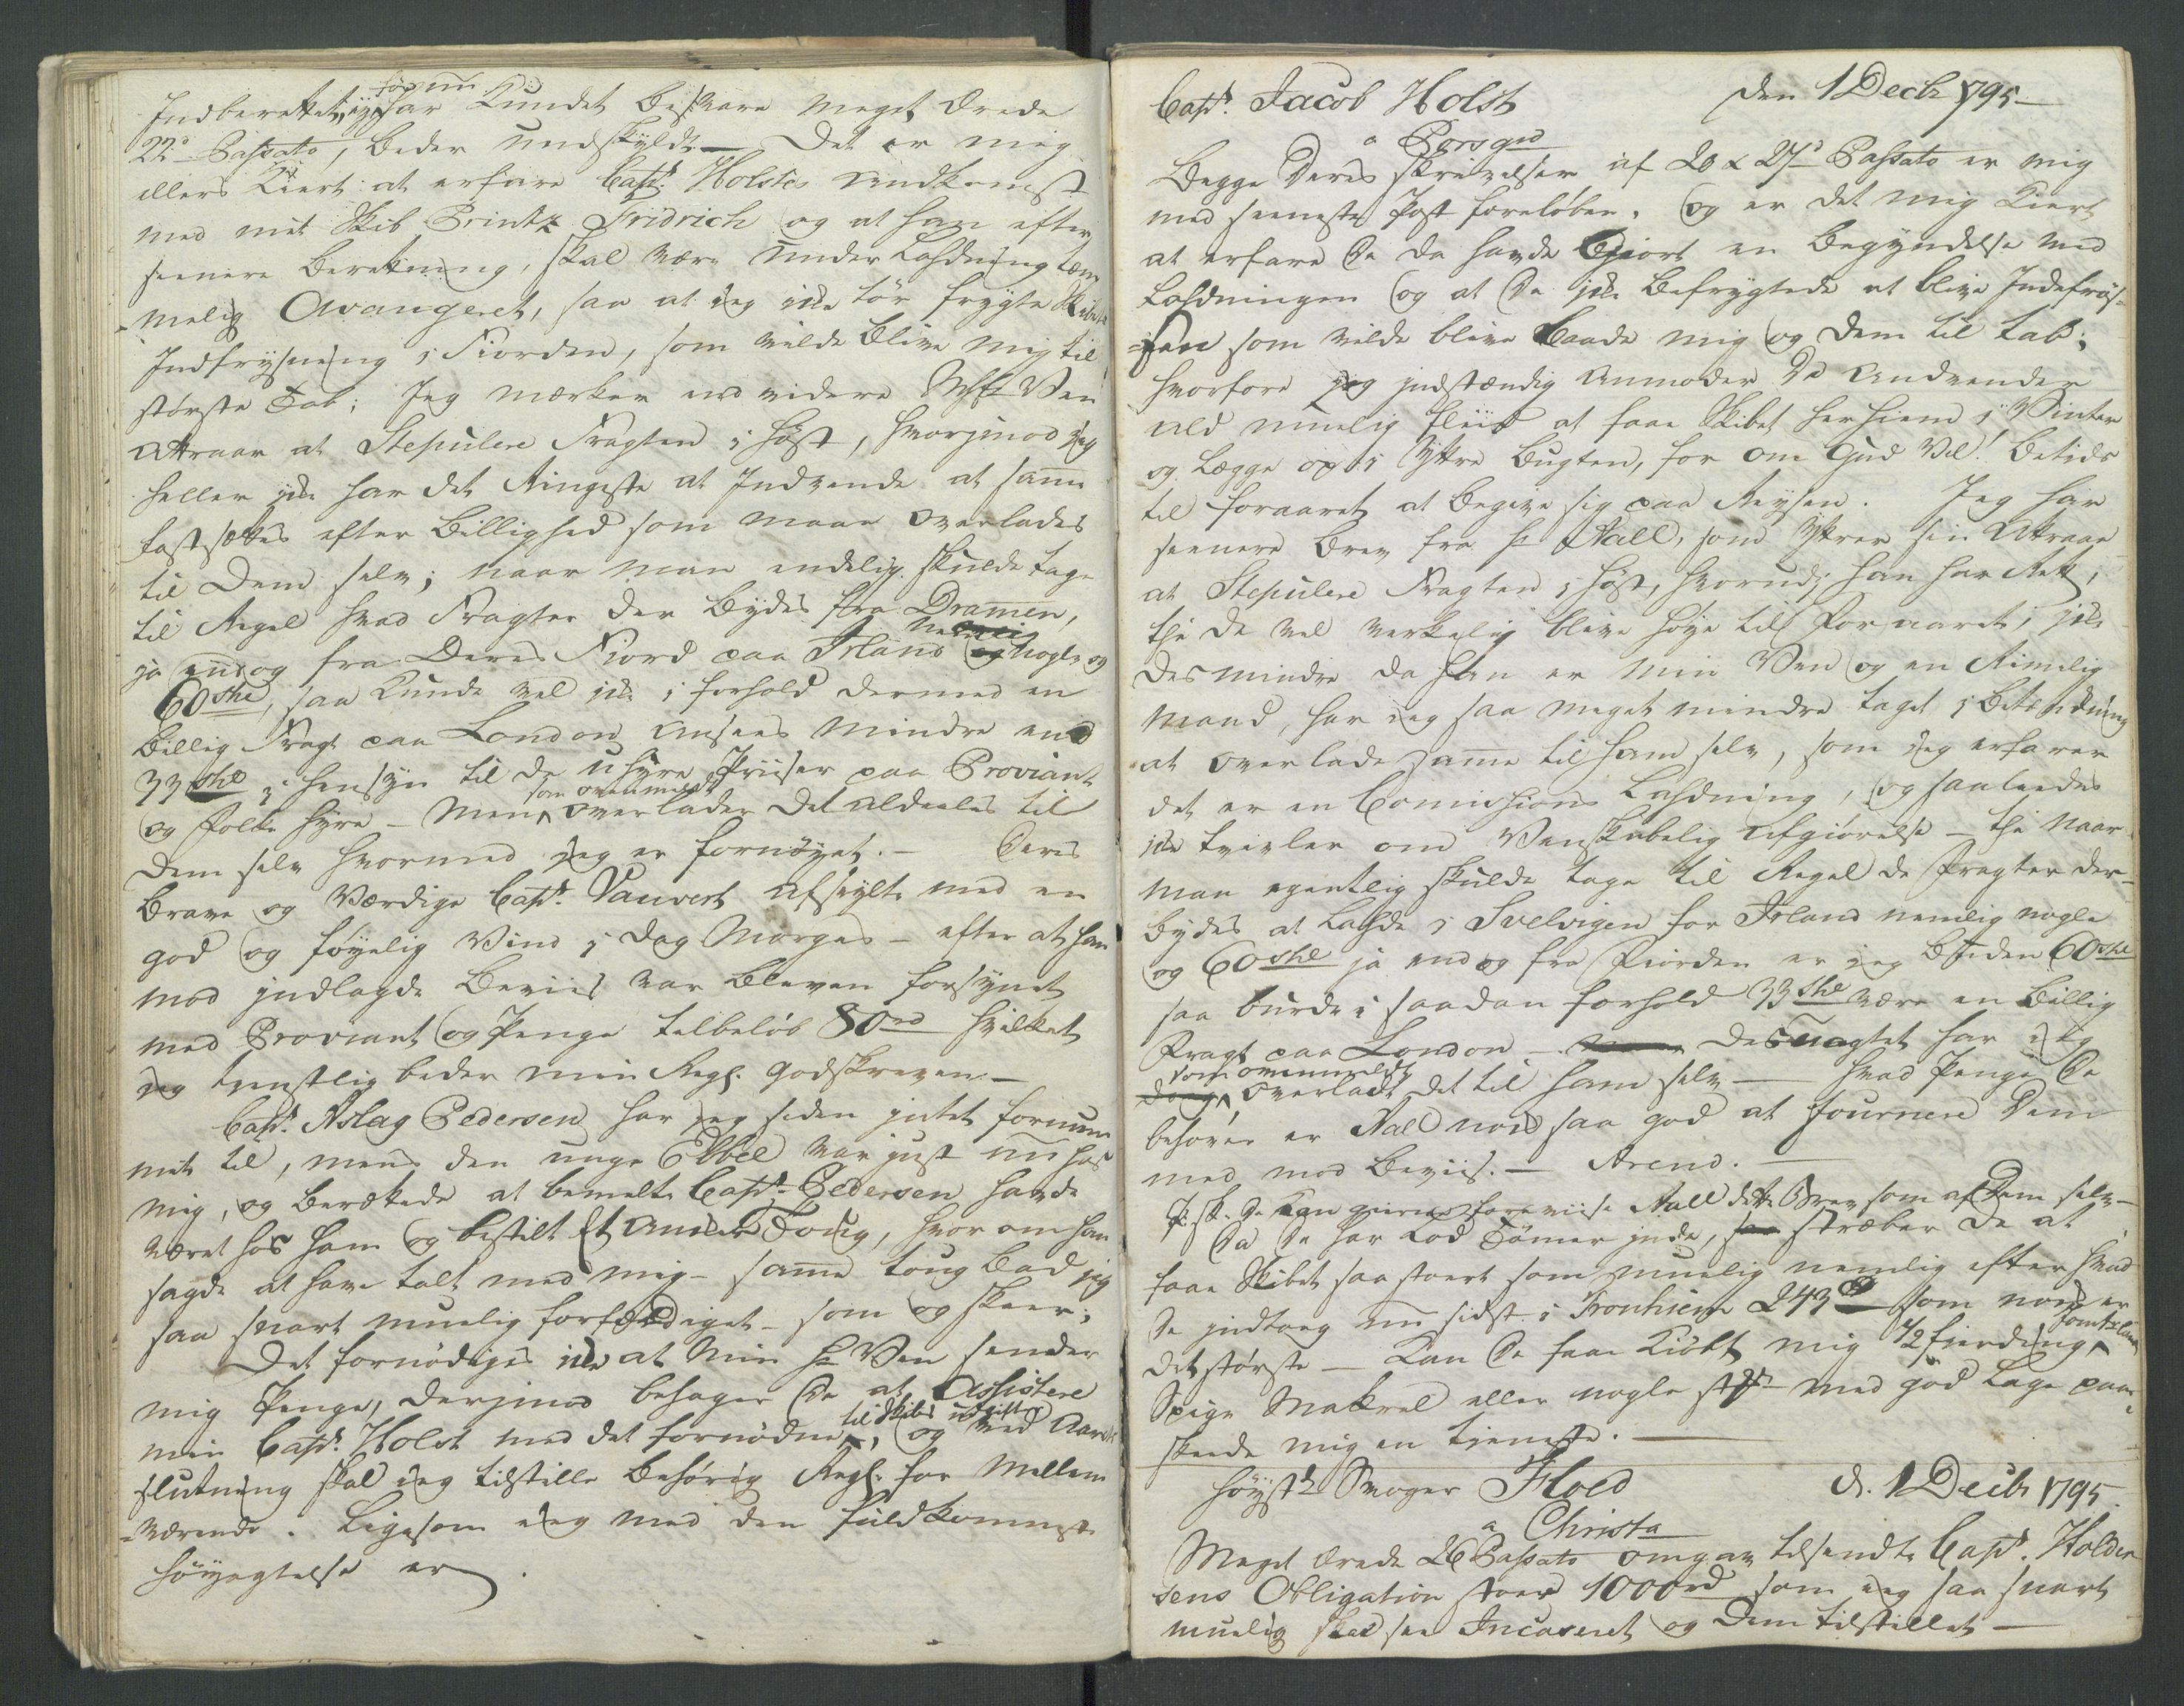 Indberettet, jeg før nu har Kundet besvare meget Ærede
22de Passato, beder undskyldt – Det er mig
ellers Kiert at erfare Capt. Holstes Ankomst
med mit Skib Printz Fridrich og at han efter
seenere Beretning, skal være under Lasdning tem-
melig Avangeret, saa at jeg icke tør frygte Skibets
Indfrysning i Fiorden, som vilde blive mig til
største Tab; Jeg mærker end videre Ven
Attraar at Stepulere Fragten i høst, hvorimod jeg
heller icke har det Ringeste at Indvende at samme
fastsættes efter Billighed som maae overlades
til Dem selv; naar man endelig skulde tage
til Regel hvad Fragter der bydes fra Dramen,
ja endog fra Deres Fiord paa Irland nemlig nogle og
60 shl, saa Kunde vel icke i forhold dermed en
billig Fragt paa London ansees mindre end
33 shl i hensyn til de uhyre Priiser paa Proviant
og Folke Hyre – Men som ovenmeldt overlader Det aldeeles til
Dem selv hvormed jeg er fornøyet. – Deres
brave og Værdige Capt. Vauvert afseylte med en
god og føyelig Vind i Dag Morges – efter at han
mod indlagde Beviis var bleven forsynet
med Proviant og Penge tilbeløb 80 rd hvilket
jeg tienstlig beder min Regg. godskreven –
Capt. Aslag Pedersen har jeg siden intet fornum-
met til, mens den unge Ebbel var just nu hos
mig, og berættede at bemelte Capt. Pedersen havde
været hos ham og bestilt Et Anker Toug, hvor om han
sagde at have talt med mig – samme toug bad jeg
saa snart muelig forfærdiget – som og skeer;
Det fornødiges icke at Min Hr Ven sender
mig Penge, derimod behager De at Assistere
min Capt. Holst med det fornødne til Skibs udgifter, og ved Aarets
slutning skal jeg tilstille behørig Regg. for Mellem-
værende. Ligesom jeg med den fuldkomneste
høyagtelse er
Capt. Jacob Holst den 1 Decbr 1795 –
a Porsgrd
Begge Deres skrivelser af 20 & 27de Passato er mig
med seeneste Post foreløben. og er det mig Kiert
at erfare De da havde Giort en Begyndelse med
Lasdningen og at De icke befrygtede at blive Indefrøs-
sen som vilde blive baade mig og Dem til tab;
hvorfore jeg indstændig anmoder De anvender
ald muelig fliid at faae Skibet her hiem i Vinter
og Lægge op i Ytre bugten, for om Gud Vil! betids
til foraaret at begive sig paa Reysen. Jeg har
seenere brev fra Hr Aall, som Ytrer sin Attraae
at Stepulere Fragten i høst, hvorudi han har Rett,
thi de vel verkelig blive høye til Foraaret, icke
desmindre da han er min Ven og en Rimelig
Mand, har jeg saa meget mindre taget i betænkning
at overlade samme til ham selv, som jeg erfarer
det er en Comissions Lasdning, og saaleedes
icke tvivler om Venskabelig afgiørelse – thi naar
man egentlig skulde tage til Regel de Fragter der
bydes at Lasde i Svelvigen for Irland nemlig nogle
og 60 shl ja endog fra Fiorden er jeg buden 60 shl
saa burde i saadan forhold 33 shl være en billig
Fragt paa London – Des uagtet har jeg
som ovenmeldt overladt det til ham selv – hvad Penge De
behøver er Aall nok saa god at fournere Dem
med mod Beviis. – Arend. –
P. sk. De Kan gierne foreviise Aall dette Brev som af Dem selv –
Da De har Lod Tømer inde, stræber De at
faae Skibet saa stort som muelig nemlig efter hvad
De indtoeg nu sidst i Tronhiem 243 som nok er
det største – Kan De faae Kiøbt mig 1/2 fierding
Spege Makrel eller nogle med god Lage paa
skeede mig en tieneste. –
Høystr Svoger Floed d. 1 Decbr 1795.
a Christa
Meget ærede 26 Passato omgav tilsendte Capt. Holder-
sens Obligation stoer 1000 rd som jeg saa snart
muelig skal see Incaseret og Dem tilstillet –